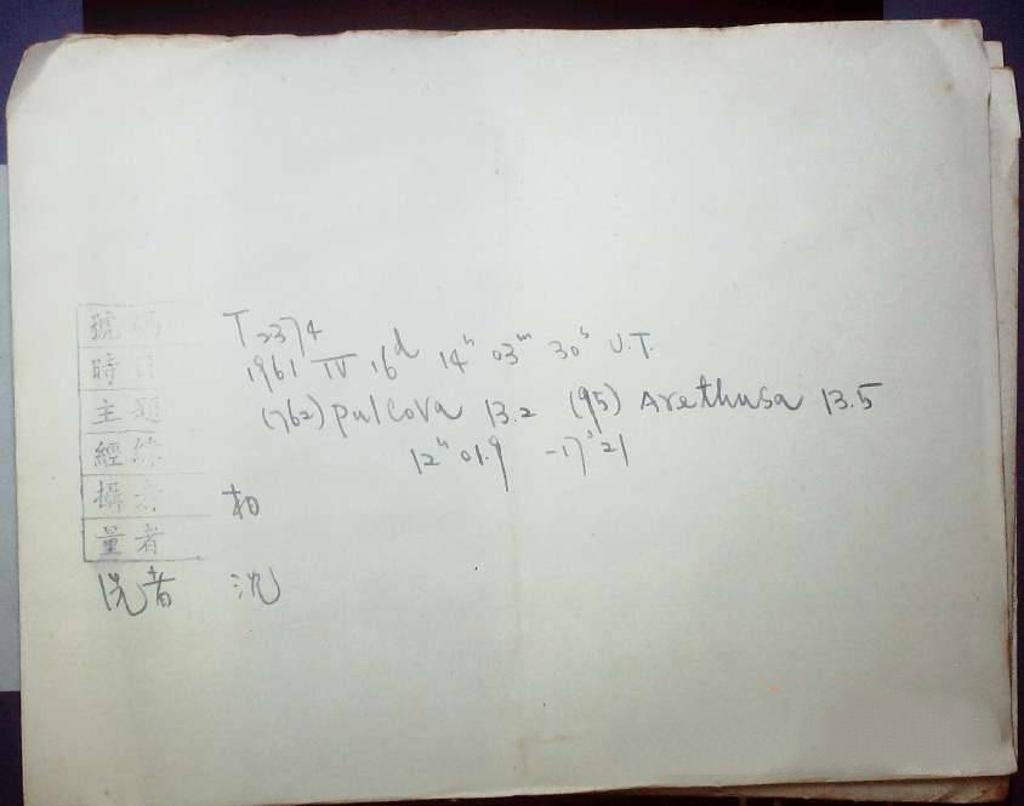 號碼 T 2374
時日 1961 IV 16d 14h 03m 30s U.T.
主題 (762) Pulcova 13.2 (95) Arethusa 13.5
經緯 12h 01.9 -17°21
攝者 柏
量者
洗者 沈